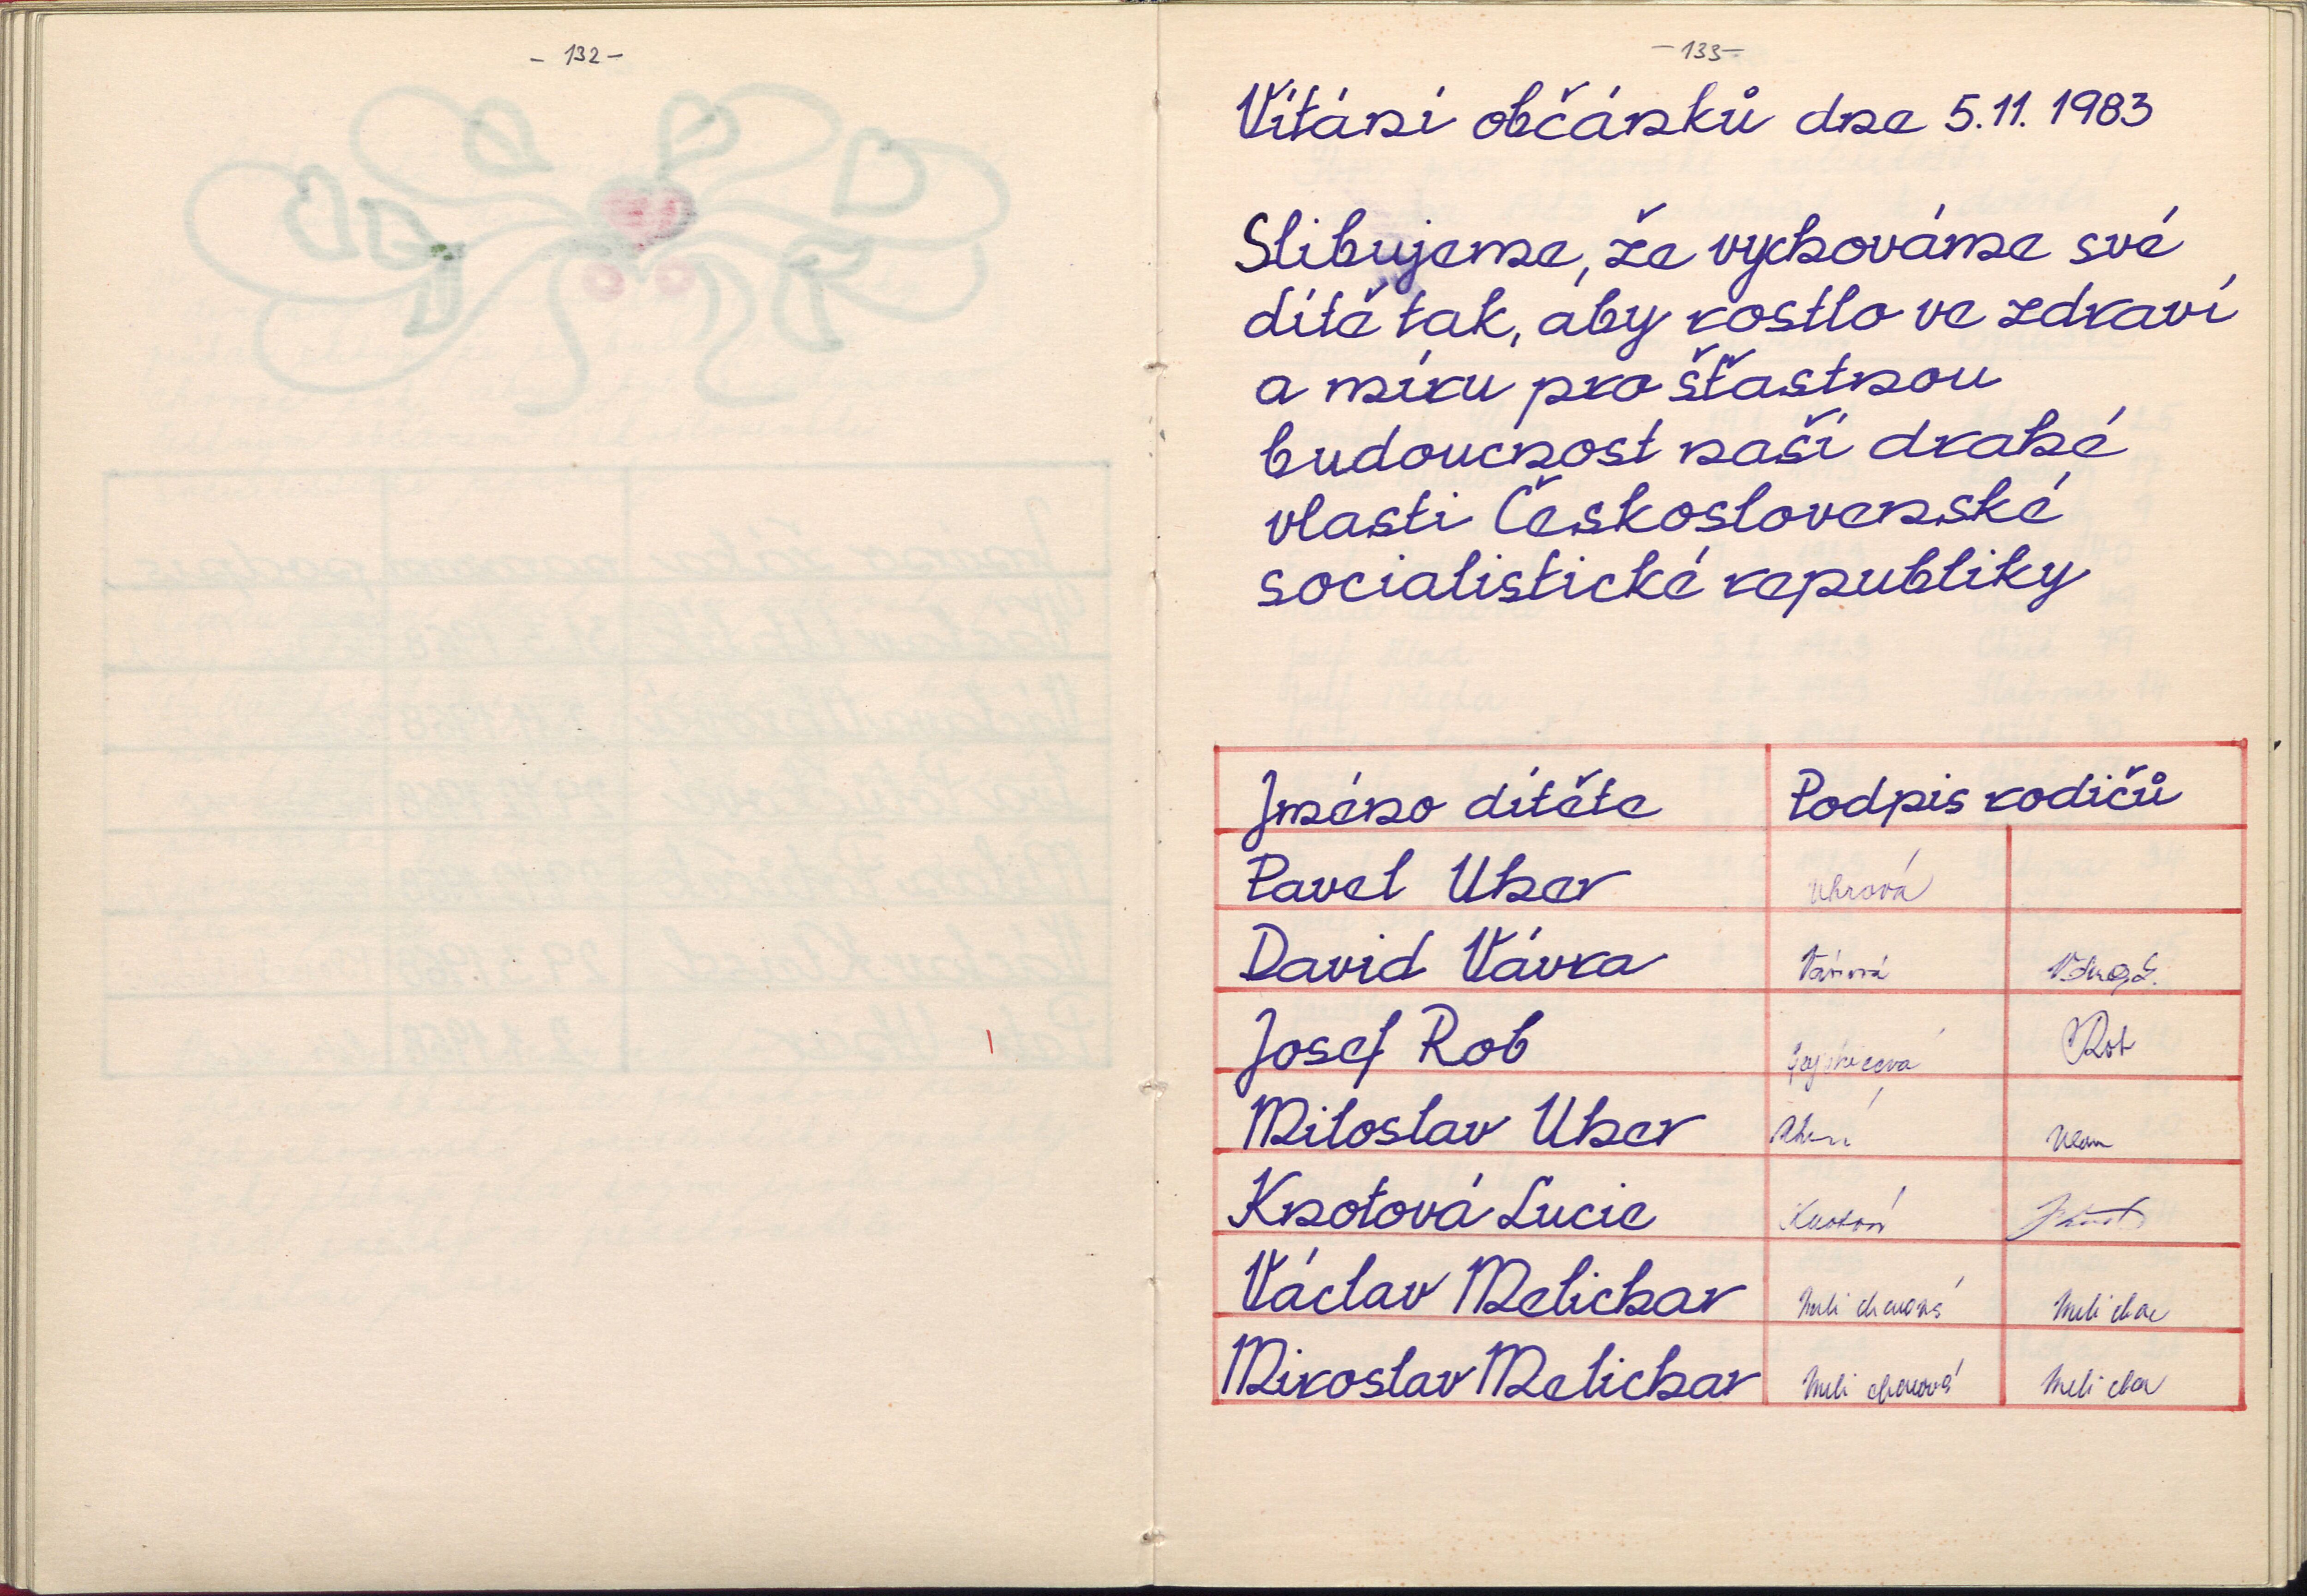 - 132 -
- 133 -
Vítání občánků dne 5.11. 1983
Slibujeme, že vychováme své
dítě tak, aby rostlo ve zdraví
a míru pro šťastnou
budoucnost naší drahé
vlasti Československé
socialistické republiky
Jméno dítěte Podpis rodičů
Pavel Uher Uhrová
David Vávra Vávrová
Josef Rob Rob
Miloslav Uher
Knotová Lucie Knotová
Václav Melichar Melicharová Melichar
Miroslav Melichar Melicharová Melichar